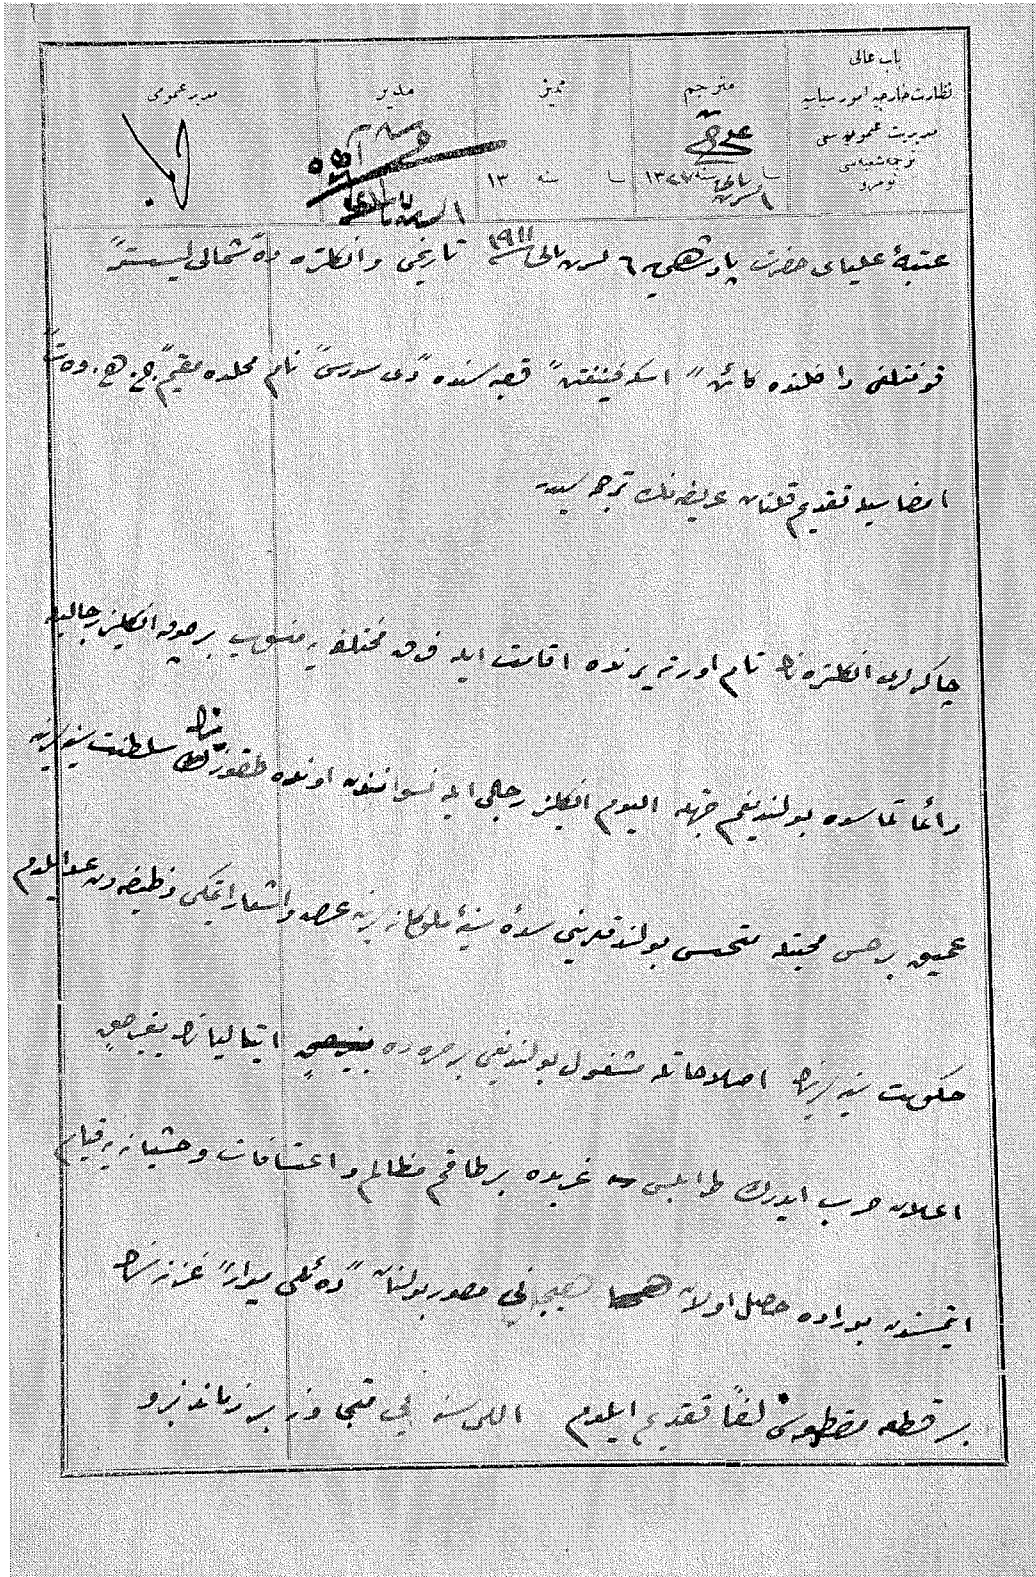 باب عالی
نظارت خارجیه امور سیاسیه
مدیریت عمومیه سی
ترجمه شعبه سی
نومرو
مترجم
سنه ١٣٢٧
ممیز
سنه ١٣
مدیر
مدیر عمومی
عتبۀ علیای حضرت پادشاهی یه ٦ ١٩١١ تاریخی و انکلتره ده شمالی
قونتلغی داخلنده كائن " " قصبه سنده " " نام محلده مقیم "ج. ه. "
امضاسیله تقدیم قلنان عریضه نك ترجمه سیدر
چاكرلری انكلتره نك تام اورته یرنده اقامت ایله فرق مختلفه یه منسوب بر چوق انكلیز رجالیله
دائما تماسده بولندیغم جهتله الیوم انكلیز رجالی ایله نسوانندن اونده طقوزینك سلطنت سنیه لرینه
عمیق بر حس محبتله متحسس بولندقلرینی سدۀ سنیۀ ملوكانه لرینه عرض و اشعار ایتمكی وظیفه دن عد ایلدم
حكومت سنیه لرینك اصلاحاتله مشغول بولندیغی بر صره ده ایتالیانك بغیر حق
اعلان حرب ایدرك طرابلس غربده بر طاقم مظالم و اعتسافات وحشیانه یه قیام
ایتمسندن بوراده حاصل اولان هیجانی مصور بولنان " " غزته سنك
بر قطعه مقطوعه سنی لفاً تقدیم ایلدم اللی سنه یی متجاوز بر زماندنبرو